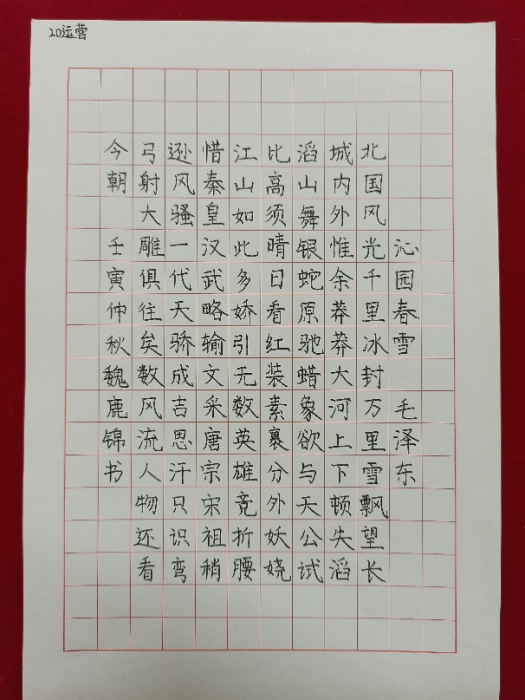 20运营
沁园春雪 毛泽东
北国风光千里冰封万里雪飘望长
城内外惟余莽莽大河上下顿失滔
滔山舞银蛇原驰蜡象欲与天公试
比高须晴日看红装素裹分外妖娆
江山如此多娇引无数英雄竞折腰
惜秦皇汉武略输文采唐宗宋祖稍
逊风骚一代天骄成吉思汗只识弯
弓射大雕俱往矣数风流人物还看
今朝 壬寅仲秋魏鹿锦书